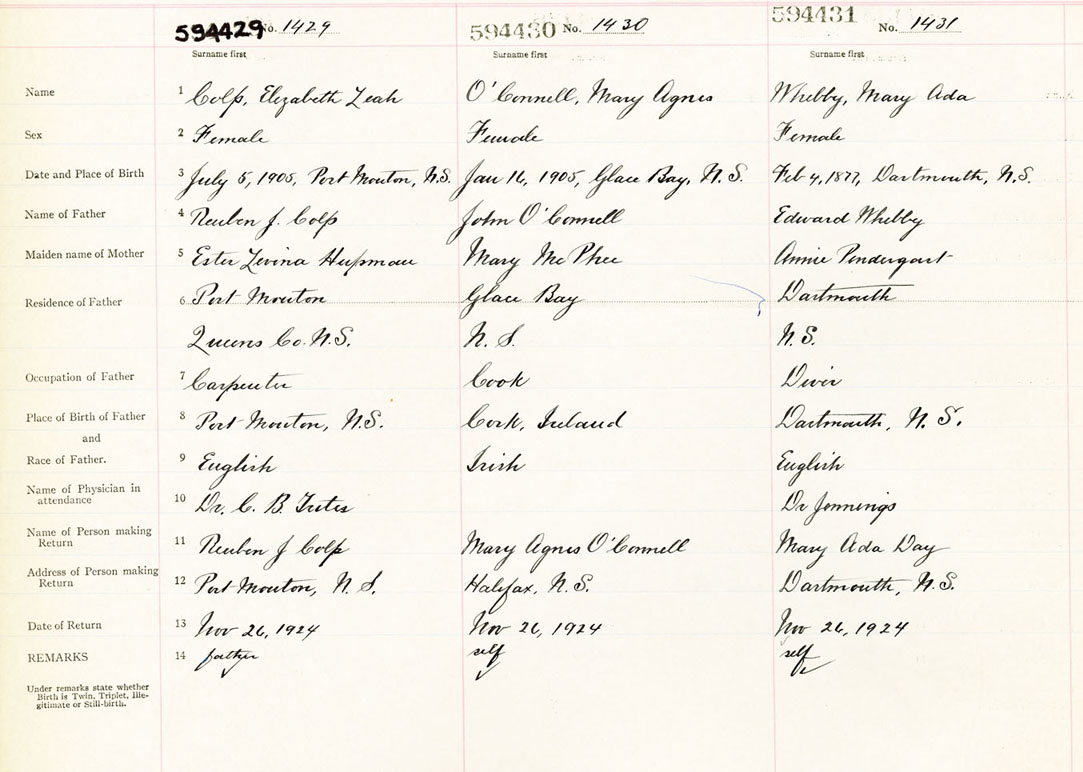 594429 No. 1429 594430 No. 1430 594431 No. 1431
Surname first Surname first Surname first
Name 1 Colp, Elizabeth Leah O'Connell, Mary Agnes Whebby, Mary Ada
Sex 2 Female Female Female
Date and Place of Birth 3 July 5, 1905, Port Mouton, N.S. Jan 16, 1905, Glace Bay, N.S. Feb 4, 1877, Dartmouth, N.S.
Name of Father 4 Reuben J. Colp John O'Connell Edward Whebby
Maiden name of Mother 5 Ester Levina Hupman Mary McPhee Annie Pendergast
Residence of Father 6 Port Mouton Glace Bay Dartmouth
Queens Co. N.S. N.S. N.S.
Occupation of Father 7 Carpenter Cook Diver
Place of Birth of Father 8 Port Mouton, N.S. Cork, Ireland Dartmouth, N.S.
and
Race of Father. 9 English Irish English
Name of Physician in
attendance 10 Dr. C. B. Dr Jennings
Name of Person making
Return 11 Reuben J Colp Mary Agnes O'Connell Mary Ada Day
Address of Person making
Return 12 Port Mouton, N.S. Halifax, N.S. Dartmouth, N.S.
Date of Return 13 Nov 26, 1924 Nov 26, 1924 Nov 26, 1924
REMARKS 14 father self self
Under remarks state whether
Birth is Twin, Triplet, Ille-
gitimate or Still-birth.